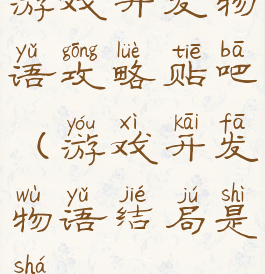 游戏开发物
yǔ gōng lüè tiē bā
语攻略贴吧
yóu xì kāi fā
（游戏开发
wù yǔ jié jú shì
物语结局是
shá